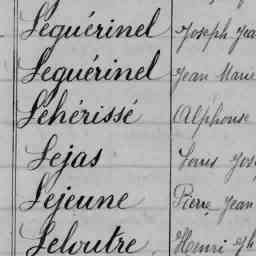 Leguérinel Joseph Jea
Leguérinel Jean Marie
Lehérissé Alphonse
Lejas Louis Jos
Lejeune Pierre Jean
Leloutre Henri